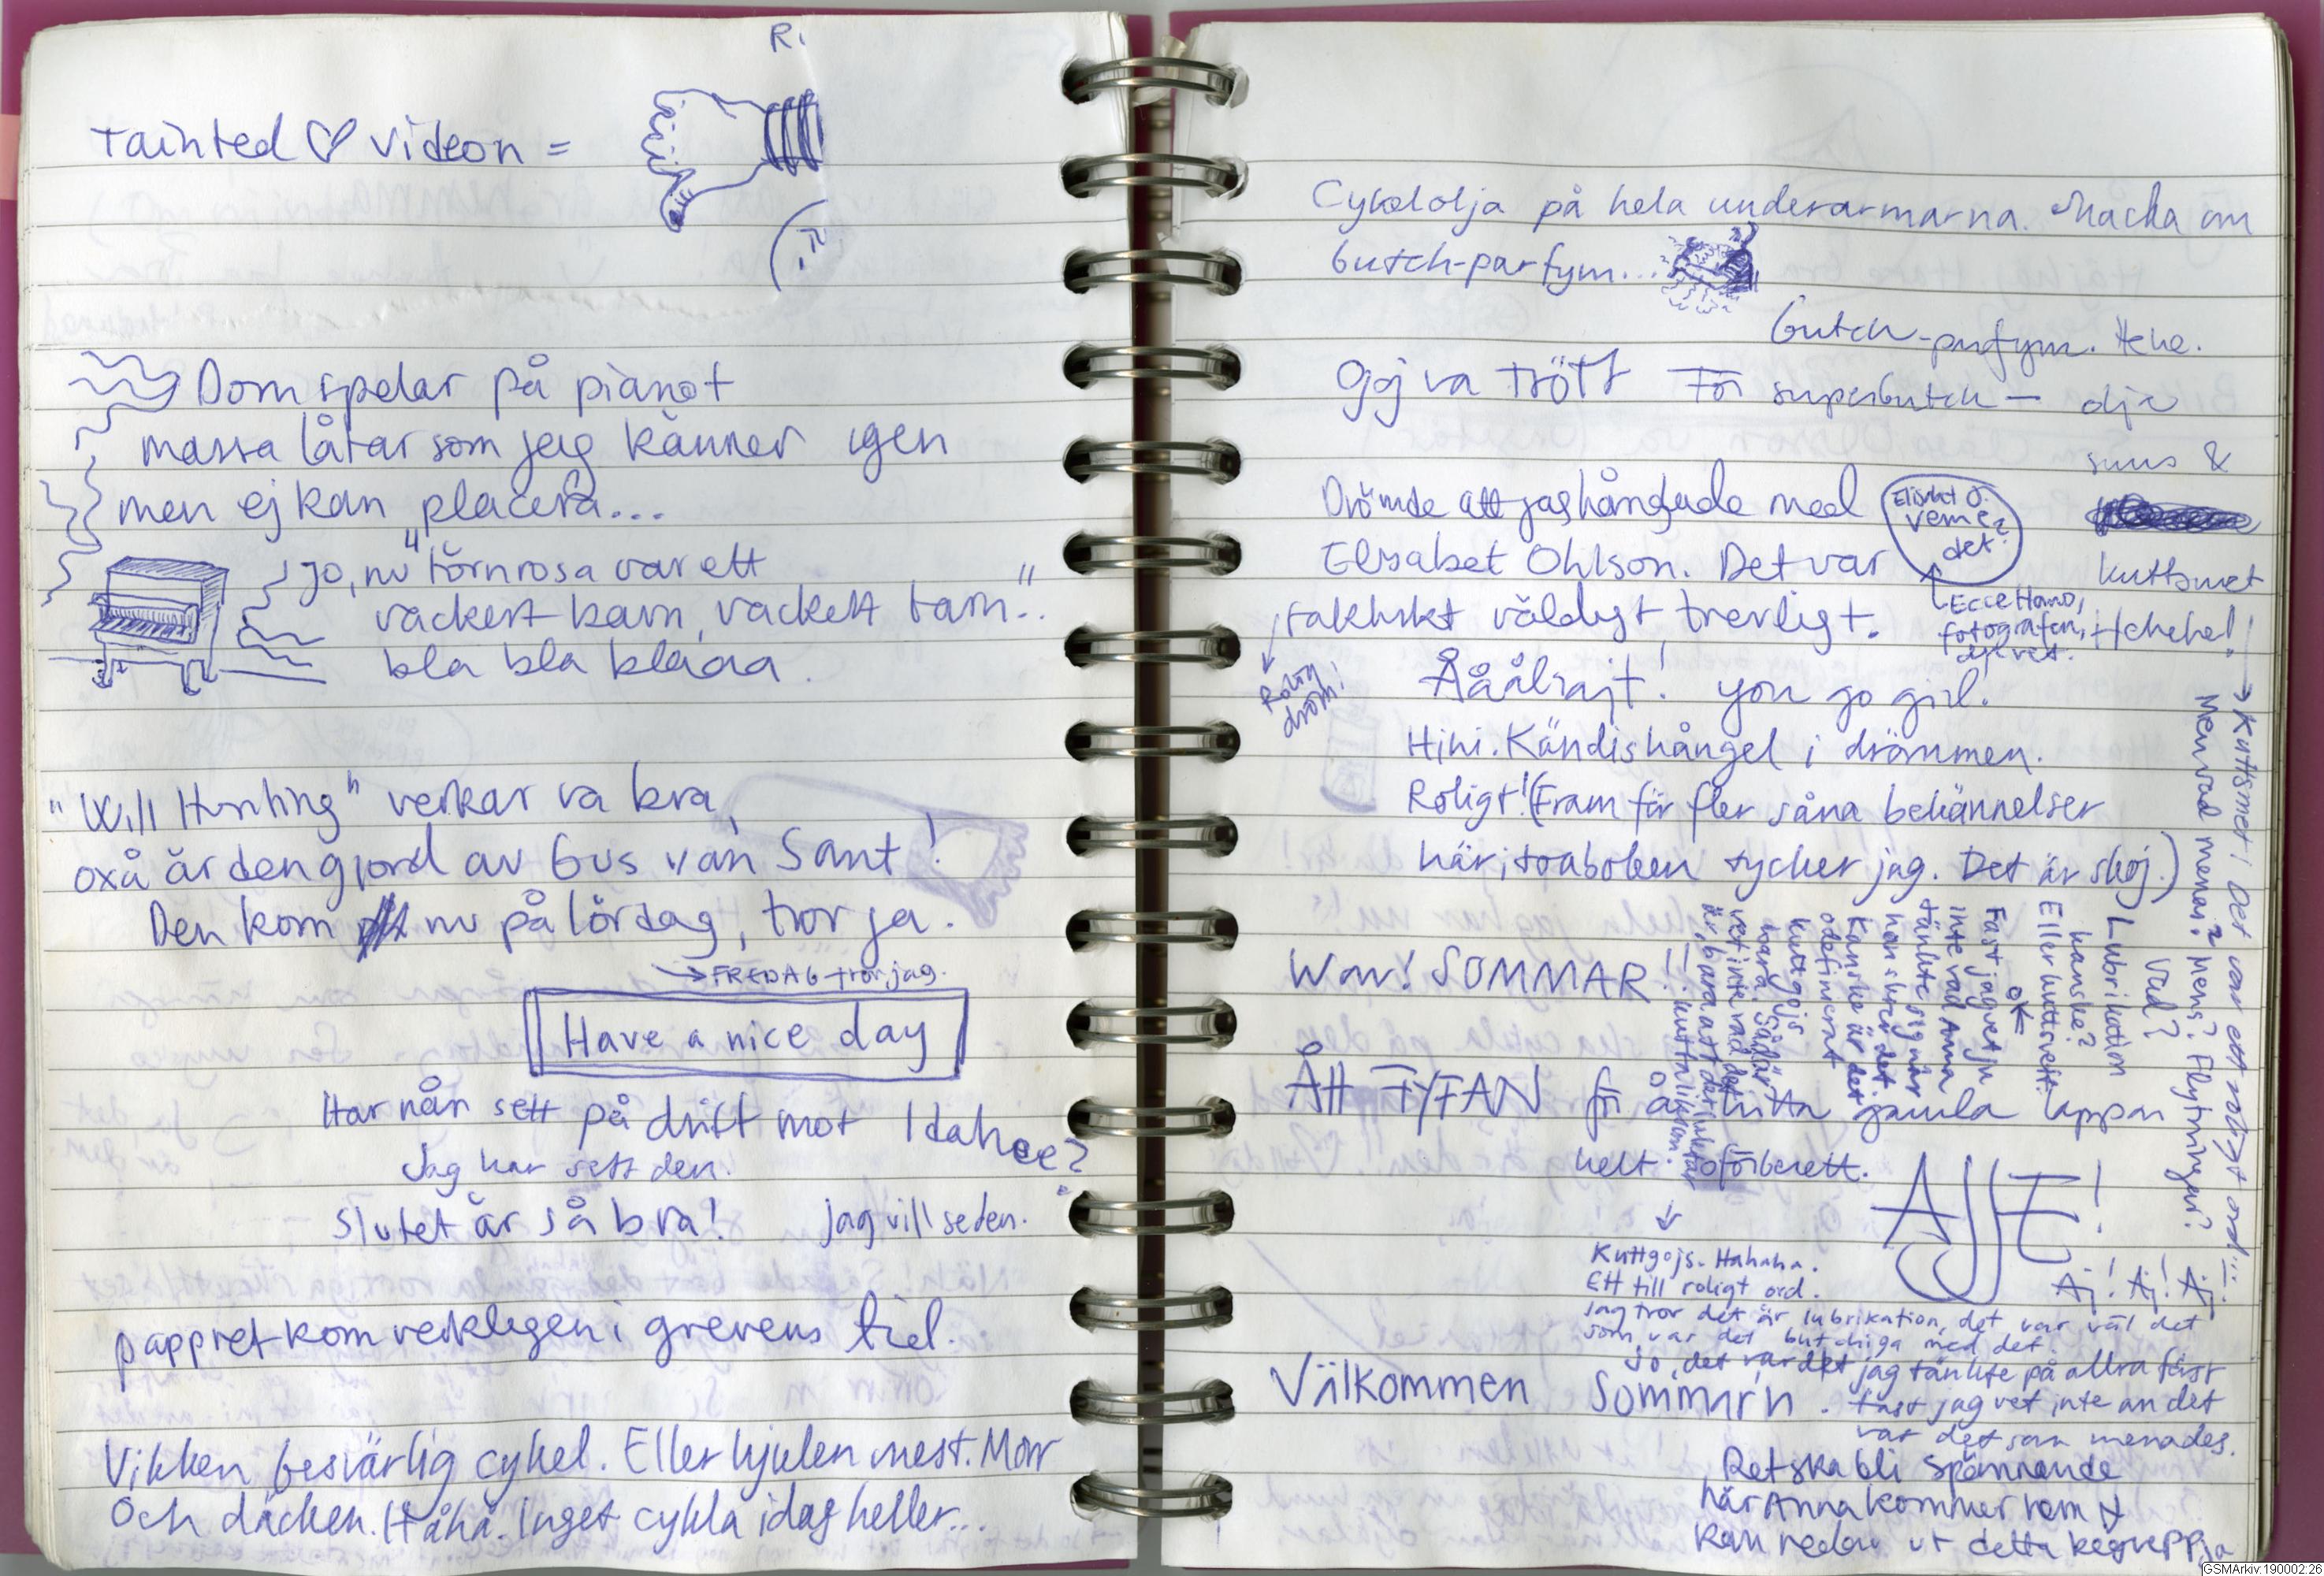 R.
Tainted ♡ videon =
Dom spelar på pianot
massa låtar som jag känner igen
men ej kan placera...
Jo, nu "törnrosa var ett
vackert barn, vackert barn"..
bla bla blaaa.
"Will Hunting" verkar va bra,
oxå är den gjord av Gus van Sant!
Den kom nu på lördag, tror ja.
→FREDAG tror jag.
Have a nice day
Har nån sett på drift mot Idahoe?
Jag har sett den.
Slutet är så bra!
jag vill se den.
pappret kom verkligen i grevens tid.
Vilken besvärlig cykel. Eller hjulen mest. Morr
Och däcken. Håhå. Inget cykla idag heller...
Cykelolja på hela underarmarna. Snacka om
butch-parfym...
butch-parfym. Hehe.
Ojoj va TRÖTT
För superbutch — olja
& 
kuttsmet
Hehehe!
Drömde att jag hånglade med
Elisabet Ohlson. Det var
faktiskt väldigt trevligt.
Elisabet O.
vem e
det?
Ecce Homo,
fotografen,
du vet.
Rolig
dröm!
Åäålrajt! you go girl.
Hihi. Kändishångel i drömmen.
Roligt! (Fram för fler såna bekännelser
här i toaboken tycker jag. Det är skoj.)
→ Kuttsmet! Det var ett roligt ord...
Men vad menas? Mens? Flytningar?
Vad?
Lubrikation
kanske?
Eller kuttsvett.
Fast jag vet ju
inte vad Anna
tänkte sig när
hon skrev det.
Kanske är det
odefinierat
kuttgojs
bara. Sådär
vet inte vad det
är, bara att det luktar
kutta liksom.
Wow! SOMMAR!!
Att FYFAN för å hitta gamla lappar
helt oförberett.
AJJE!
Aj! Aj! Aj!
Kuttgojs. Hahaha.
Ett till roligt ord.
Jag tror det är lubrikation, det var väl det
som var det butchiga med det.
Jo, det var det jag tänkte på allra först
fast jag vet inte om det
var det som menades.
Välkommen Sommarn.
Det ska bli spännande
när Anna kommer hem &
kan reda ut detta begrepp ja
GSMArkiv:190002:26